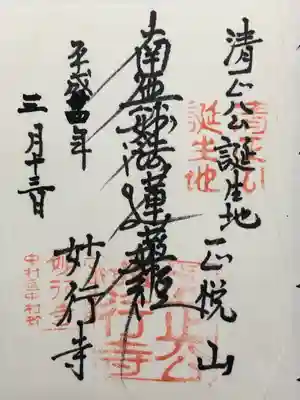 清正公誕生地 正悦山
南無妙法蓮華経
妙行寺
平成四年
三月十三日
清正公
誕生地
妙行寺
中村区中村町